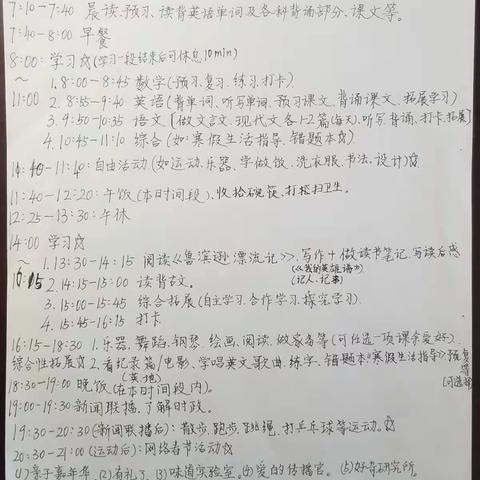 7:10-7:40 晨读、预习、读背英语单词及各科背诵部分、课文等。
7:40-8:00 早餐
8:00: 学习☆(学习一段结束后可休息10min)
~ 1.8:00-8:45 数学(预习、复习、练习、打卡)
11:00 2.8:55-9:40 英语(背单词、听写单词、预习课文、背诵课文、拓展学习)
3.9:50-10:35 语文[做文言文、现代文各1-2篇(每天)、听写、背诵、打卡、拓展]
4.10:45-11:10 综合(如:寒假生活指导、错题本☆).
11:10-11:40:自由活动(如运动、乐器、学做饭、洗衣服、书法、设计)☆
11:40-12:20:午饭(本时间段)、收拾碗筷、打扫卫生。
12:25-13:30:午休
14:00 学习☆
~ 1.13:30-14:15 阅读《鲁滨逊漂流记》、写作+做读书笔记、写读后感
(《我的英雄谱》)
(记人、记事)
16:15 2.14:15-15:00 读背古文。
3.15:00-15:45 综合拓展(自主学习、合作学习、探究学习).
4.15:45-16:15 打卡
16:15-18:30 1.乐器、舞蹈、钢琴、绘画、阅读、做家务等(可任选一项课余爱好).
综合性拓展☆ 2.看纪录篇/电影、学唱英文歌曲、练字、错题本《寒假生活指导》预复习等
(英、地)
(可选择)
18:30-19:00 晚饭(在本时间段内)。
19:00-19:30 新闻联播、了解时政。
19:30-20:30(新闻联播后):散步、跑步、跳绳、打乒乓球等运动。☆
20:30-21:00(运动后):网络春节活动☆
(1)亲子嘉年华、(2)有礼了、(3)味道实验室。(4)爱的传播官。(5)好奇研究所。